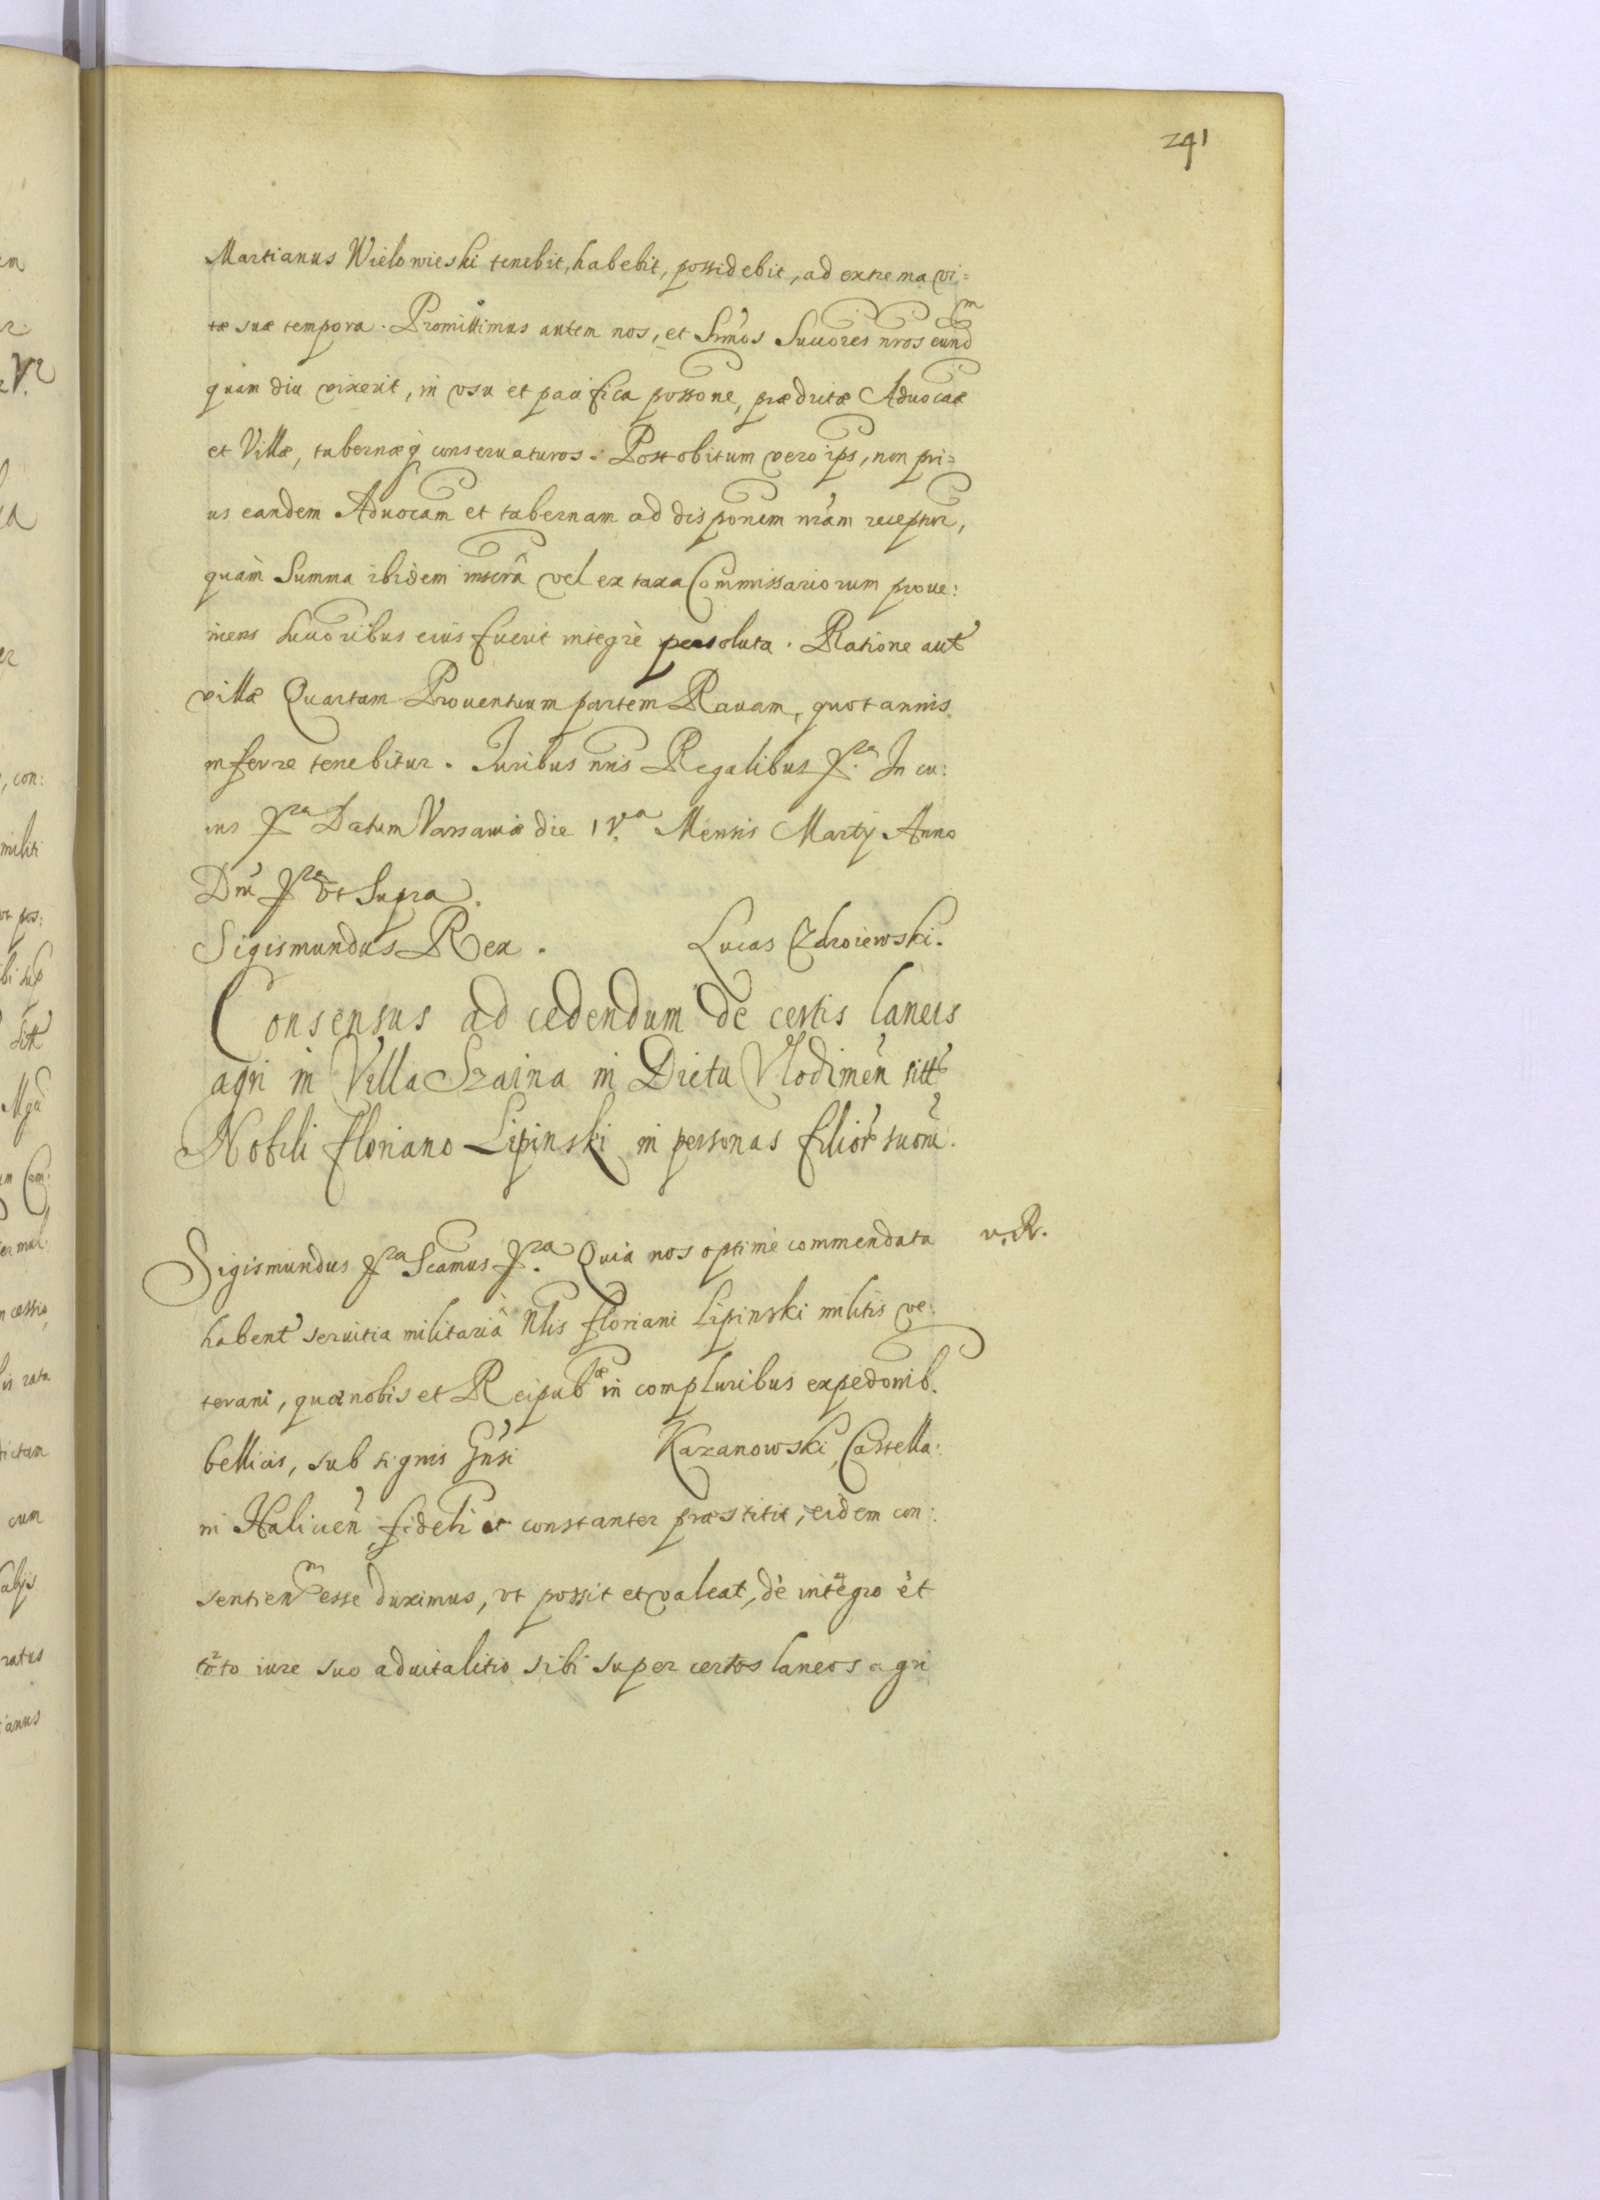 291
Martianus Wielowieski tenebit, habebit, possidebit, ad extrema vi=
tæ suæ tempora. Promittimus autem nos, et Srmos Succores nros eund̃m
quam diu vixerit, in vsu et pacifica possone, prædictæ Aduocaæ
et Villæ, tabernæq conseruaturos. Post obitum vero ips, non pri=
us eandem Aduocam et tabernam ad disponem nram receptur,
quam Summa ibidem inscra vel ex taxa Commissariorum proue:
niens succoribus eius fuerit integrè persoluta. Ratione aut
villæ Quartam Prouentuum partem Rauam, quotannis
inferre tenebitur. Iuribus nris Regalibus pra In cu:
ius pra Datum Varsauiæ die IV.a Mensis Martij Anno
Dni pra vt supra.
Sigismundus Rex. Lucas Zdroiewski.
Consensus ad cedendum de certis laneis
agri in Villa Szaina in Dictu Vlodimen sitt
Nobili Floriano Lipinski in personas filior suom.
Sigismundus pra Scamus pra. Quia nos optime commendata v. R.
habent seruitia militaria Nlis Floriani Lipinski militis ve:
terani, quæ nobis et Reipubæ in compluribus expedonib.
bellicis, sub signis Gnsi Kazanowski, Castella:
ni Halicen fideli et constanter præstitit, eidem con:
sentienm esse duximus, vt possit et valeat, de integro et
toto iure suo aduitalitio sibi super certos laneos agri